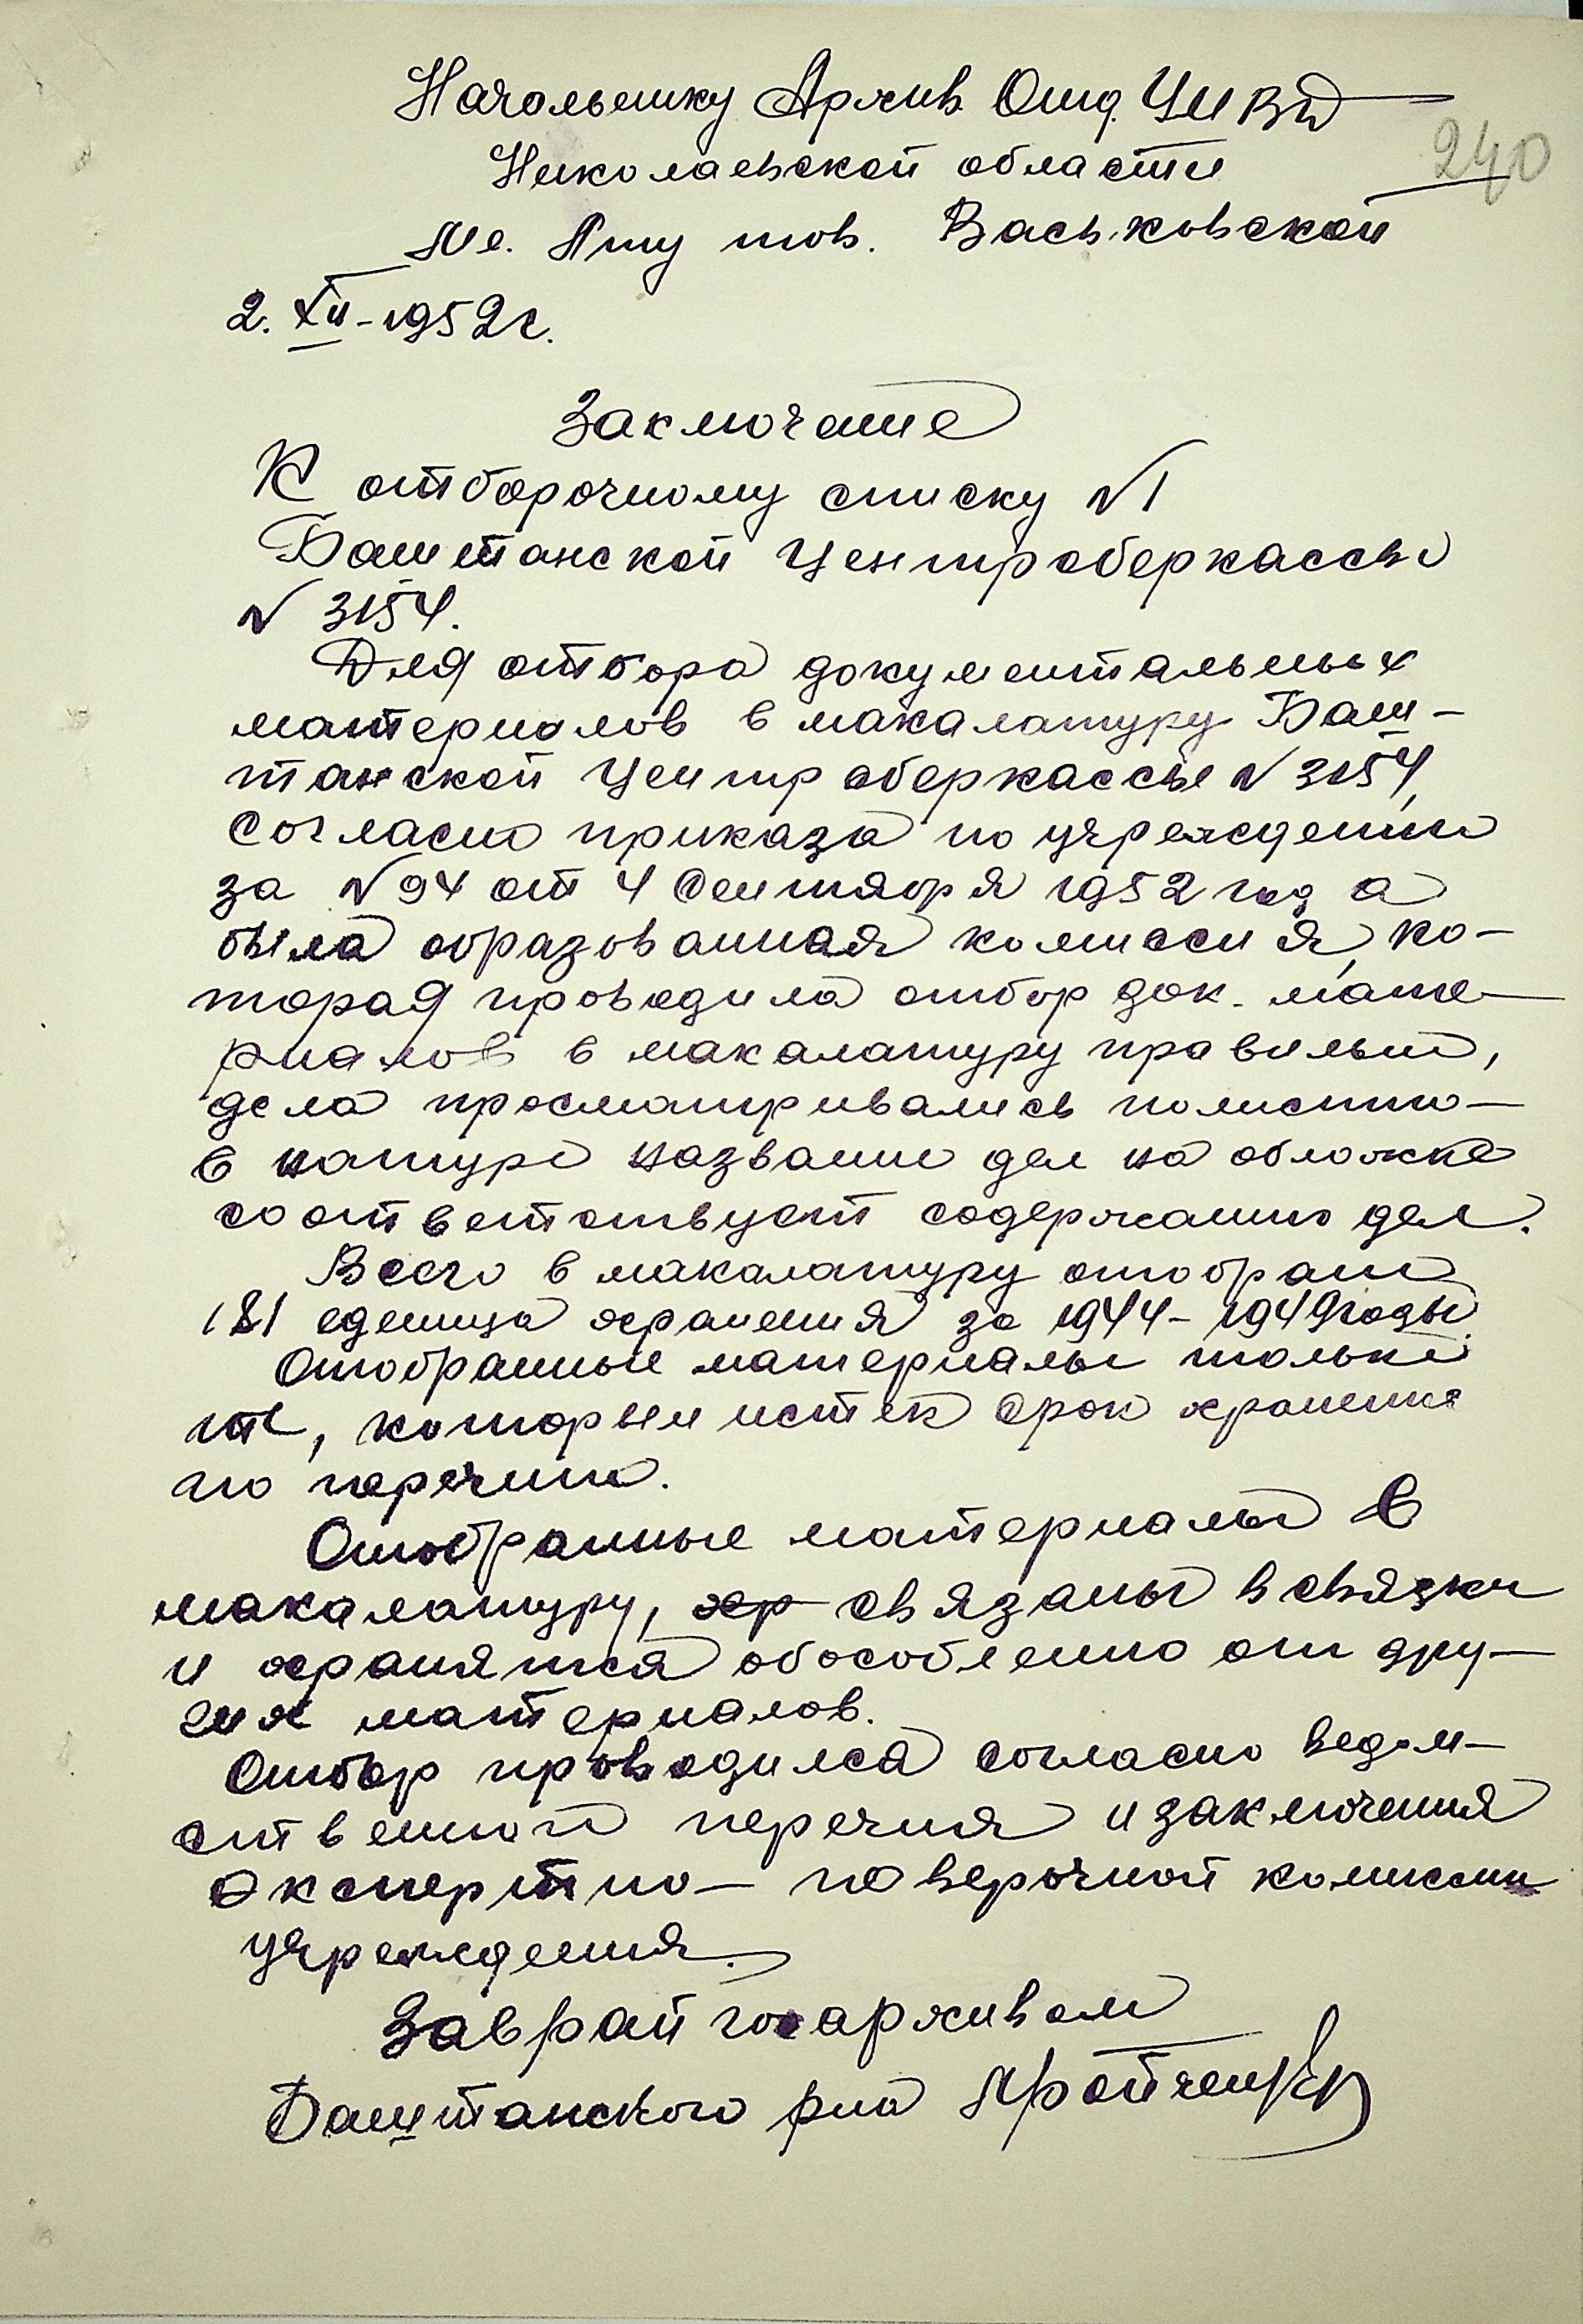 Начальнику Архив. Отд. УМВД
240
Николаевской области
Мл. Л-ту тов. Васьковской
2. XII-1952 г.
Заключение
К отборочному списку №1
Баштанской Центроберкассы
№ 3154.
Для отбора документальных
материалов в макалатуру Баш-
танской Центроберкассые № 3154,
согласно приказа по учреждению
за №94 от 4 Сентября 1952 года
была образованная комиссия, ко-
торая проводила отбор док. мате-
риалов в макалатуру правильно,
дела просматривались полистно-
в натуре название дел на обложке
соответствует содержанию дел.
Всего в макалатуру отобрано
181 еденица хранения за 1944-1949 годы.
Отобранные материалы только
те, которым истек срок хранения
по перечню.
Отобранные материалы в
макалатуру, хр связаны в связки
и хранятся обособленно от дру-
гих материалов.
Отбор проводился согласно ведом-
ственной перечня и заключения
Экспертно-поверочной комиссии
учреждения.
Заврайгосархивом
Баштанского р-на